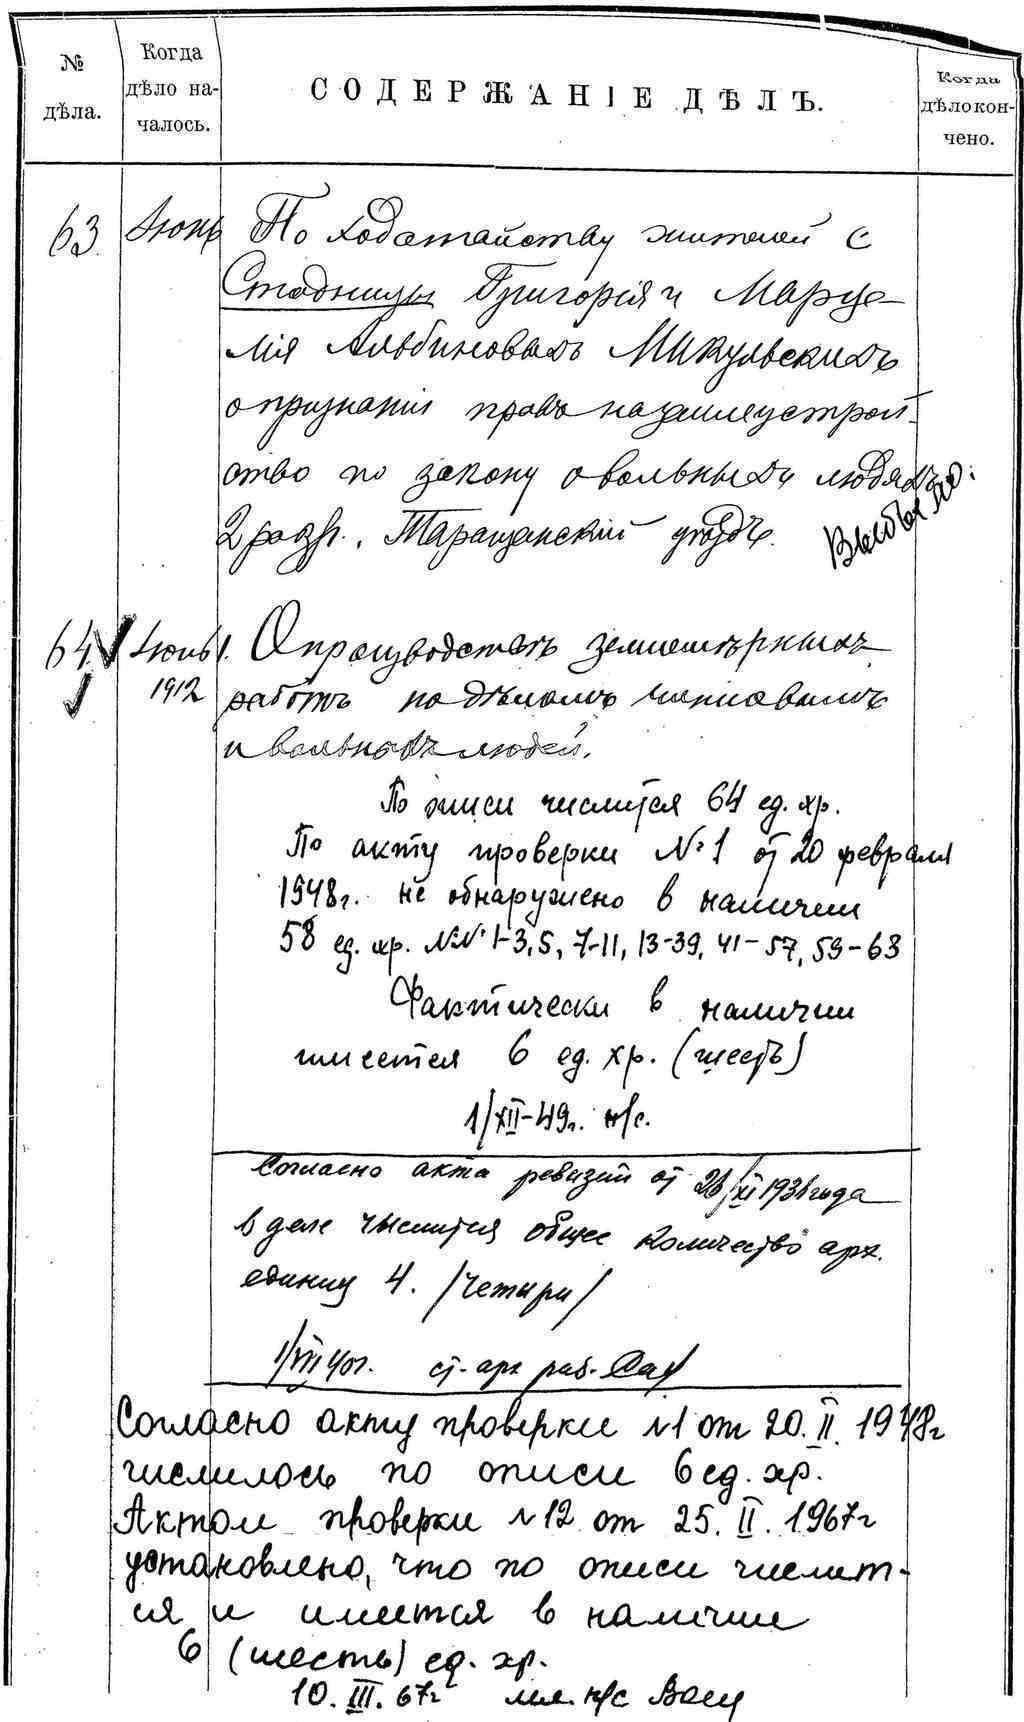 № дѣла.
Когда дѣло началось.
СОДЕРЖАНІЕ ДѢЛЪ.
Когда дѣло кончено.
63. Іюнь По ходатайству жителей с
Стадницы Григорія и Марце-
лія Альбиновыхъ Микульскихъ
о признаніи правъ на землеустрой-
ство по закону о вольныхъ людяхъ
2 разр. Таращанскій уѣздъ.
64. Іюнь 1912 О производствѣ землемѣрныхъ
работъ по дѣламъ чиншевыхъ
и вольныхъ людей.
По описи числится 64 ед. хр.
По акту проверки №1 от 20 февраля
1948г. не обнаружено в наличии
58 ед. хр. №№ 1-3, 5, 7-11, 13-39, 41-57, 59-63
Фактически в наличии
имеется 6 ед. хр. (шесть)
1/XII-49г. н/с.
Согласно акта ревизии от 26/XI 193 года
в деле числится общее количество арх.
единиц 4. /четыри/
1/VII 40г. ст. арх раб.
Согласно акту проверки №1 от 20.II.1948г
числилось по описи 6 ед. хр.
Актом проверки №12 от 25.II.1967г
установлено, что по описи числит-
ся и имеется в наличии
6 (шесть) ед. хр.
10.III.67г мл. н/с